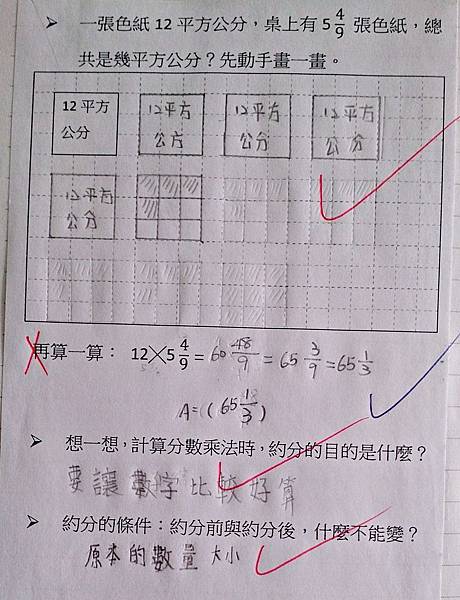 ➢ 一張色紙 12 平方公分，桌上有 5 4/9 張色紙，總
共是幾平方公分？先動手畫一畫。
12 平方 12平方 12平方 12平方
公分 公方 公分 公分
12平方
公分
再算一算： 12×5 4/9 = 60 48/9 = 65 3/9 = 65 1/3
A=(65 1/3)
➢ 想一想，計算分數乘法時，約分的目的是什麼？
要讓數字比較好算
➢ 約分的條件：約分前與約分後，什麼不能變？
原本的數量大小